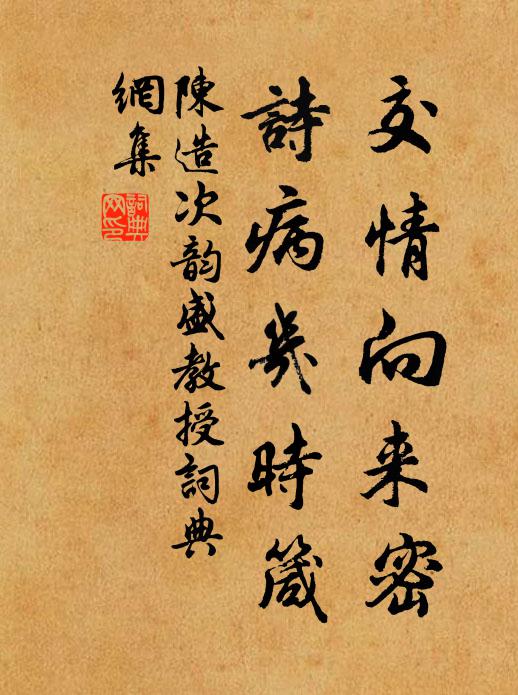 交情向来密
詩病幾時箴
陳造次韵盛教授詞典
網集
詞典
网印